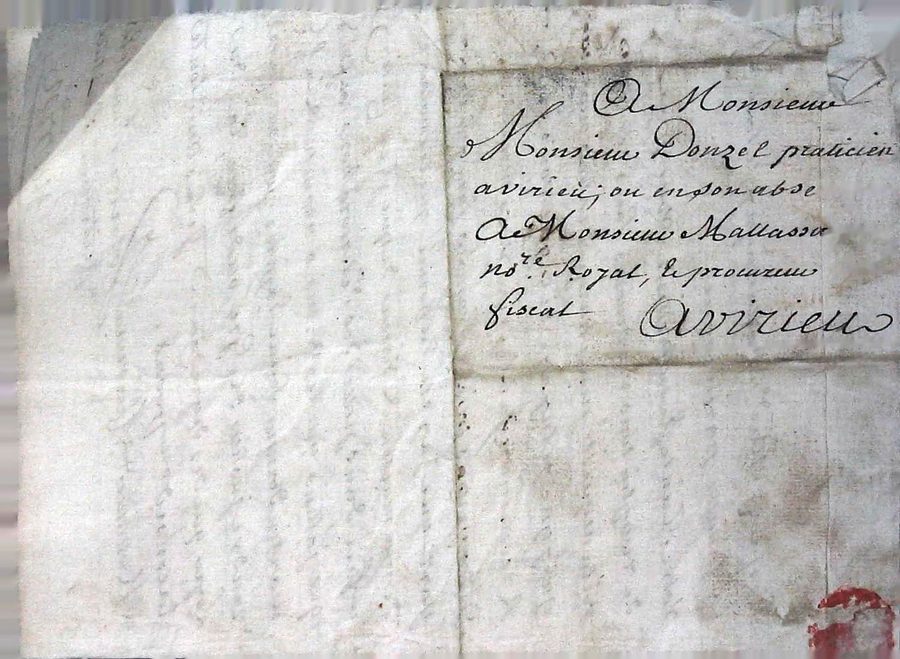 A Monsieur
Monsieur Donzel praticien
avirieu, ou enson absе
A Monsieur Mallassa
nore. Royal, & procureur
fiscal avirieu